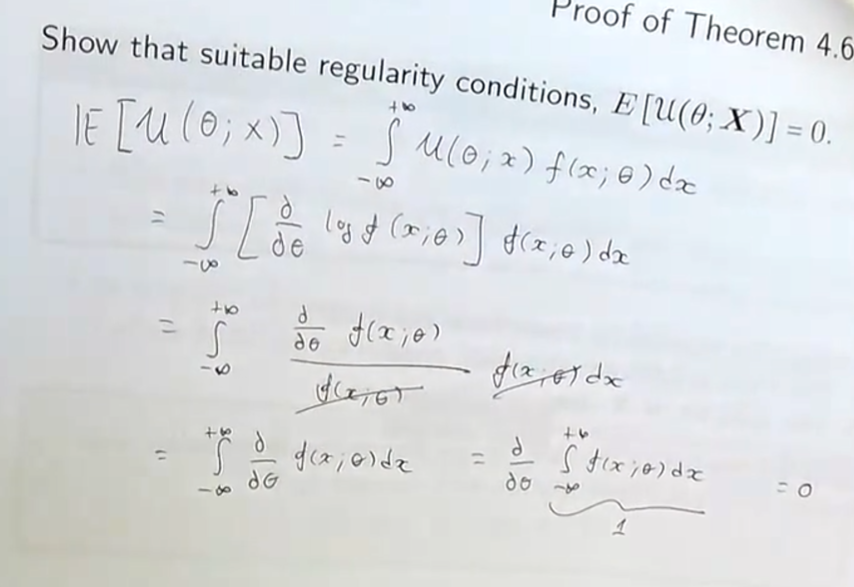 Proof of Theorem 4.6
Show that suitable regularity conditions, E[U(θ; X)] = 0.
𝔼[U(θ; x)] = ∫_{-∞}^{+∞} U(θ; x) f(x; θ) dx
= ∫_{-∞}^{+∞} [∂/∂θ log f(x; θ)] f(x; θ) dx
= ∫_{-∞}^{+∞} (∂/∂θ f(x; θ)) / f(x; θ) f(x; θ) dx
= ∫_{-∞}^{+∞} ∂/∂θ f(x; θ) dx = ∂/∂θ ∫_{-∞}^{+∞} f(x; θ) dx = 0
1